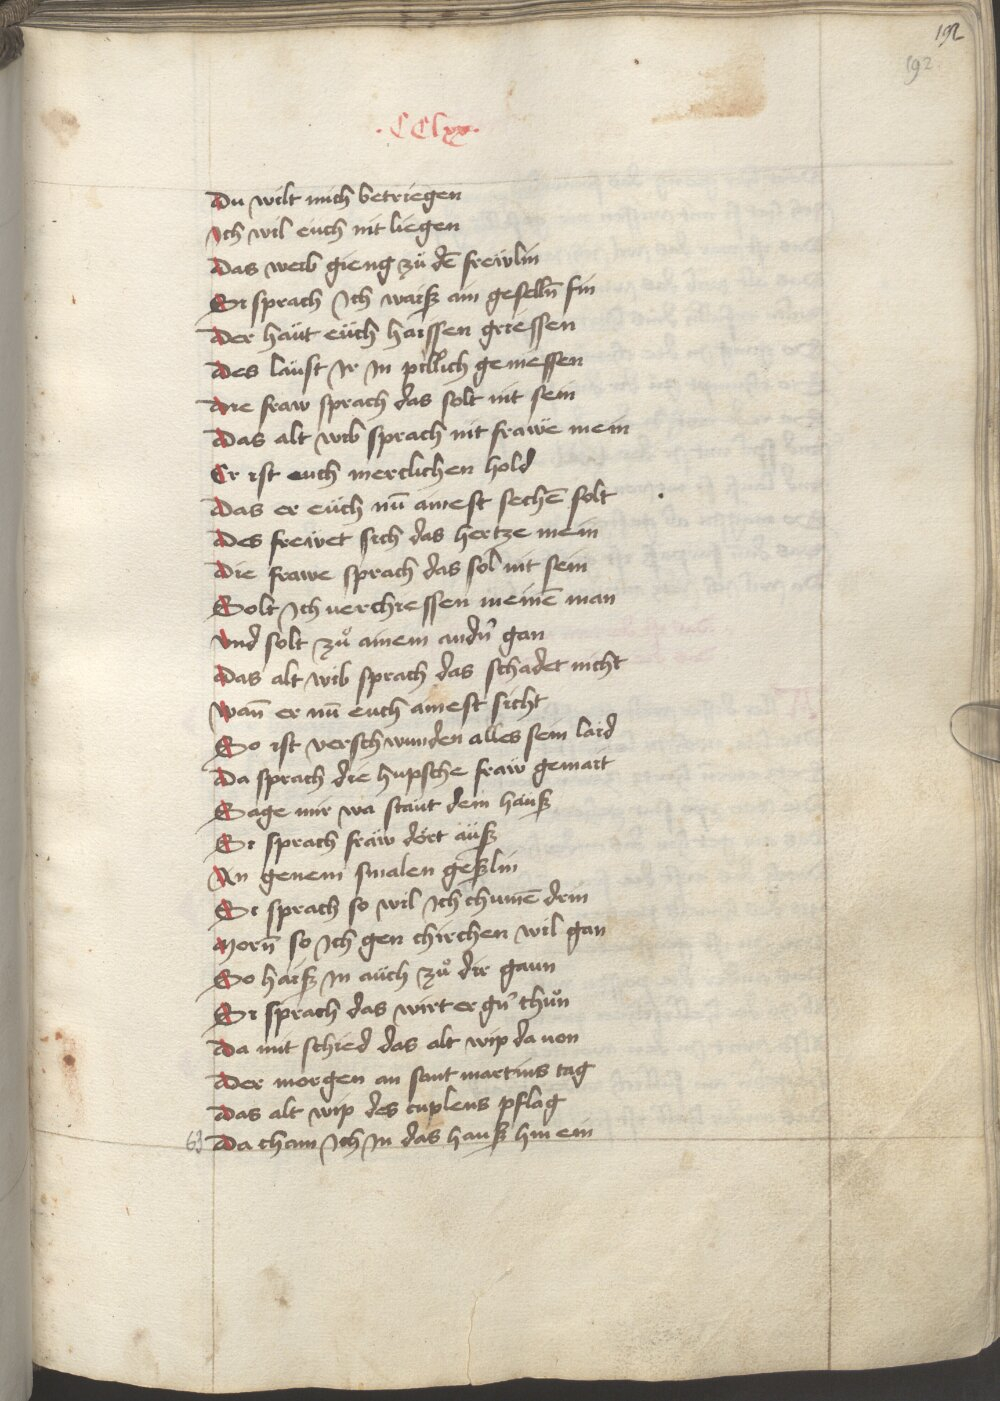 192
192.
·CClxx·
Du wilt mich betriegen
Ich wil euch nit liegen
Das weib gieng zů dē frewlin
Si sprach Ich waiß ain geselln̄ fin
Der haüt eüch haissen griessen
Des laüst Ir In pillich geniessen
Die fraw sprach das solt nit sein
Das alt wib sprach nit frawe mein
Er ist euch merclichen hold
Das er eüch nū ainest sechē solt
Des frewet sich das hertze mein
Die frawe sprach das sol nit sein
Solt Ich verchiessen meinē man
Vnd solt zů ainem andn̄ gan
Das alt wib sprach das schadet nicht
Wan̄ er nū euch ainest sicht
So ist verschwunden alles sein laid
Da sprach die hupsche fraw gemait
Sage mir wa staut dein hauß
Si sprach fraw dört auß
An genem smalen geßlin
Si sprach so wil Ich chumē drin
Morn̄ so Ich gen chirchen wil gan
So haiß In aüch zů dir gaun
Si sprach das wirt er gn̄ thůn
Da mit schied das alt wip da uon
Der morgen an sant martins tag
Das alt wip des cuplens pflag
63 Da cham Ich In das hauß hin ein